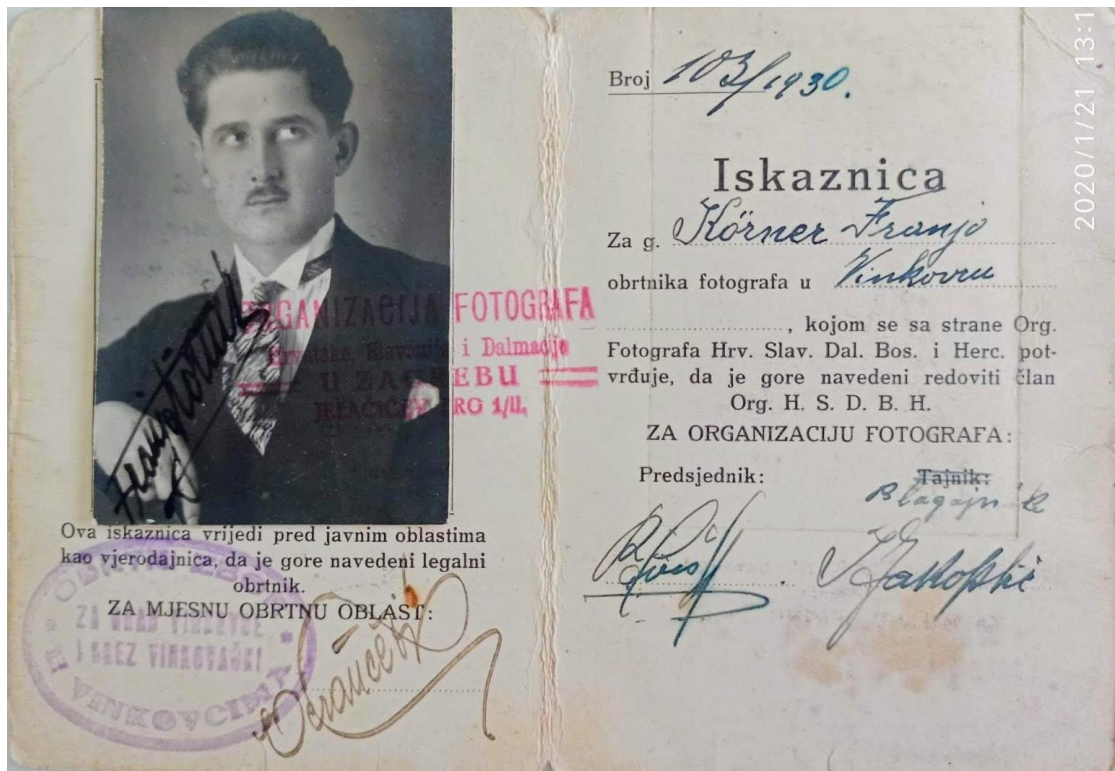 ORGANIZACIJA FOTOGRAFA
Hrvatske, Slavonije i Dalmacije
U ZAGREBU
JELAČIĆEV TRG 1/II.
Ova iskaznica vrijedi pred javnim oblastima
kao vjerodajnica, da je gore navedeni legalni
obrtnik.
ZA MJESNU OBRTNU OBLAST:
ZA GRAD VINKOVCE
I SREZ VINKOVAČKI
U VINKOVCIMA
Broj 103/1930.
Iskaznica
Za g. Körner Franjo
obrtnika fotografa u Vinkovcu
, kojom se sa strane Org.
Fotografa Hrv. Slav. Dal. Bos. i Herc. pot-
vrđuje, da je gore navedeni redoviti član
Org. H. S. D. B. H.
ZA ORGANIZACIJU FOTOGRAFA:
Predsjednik: Tajnik:
Blagajnik
2020/1/21 13:1